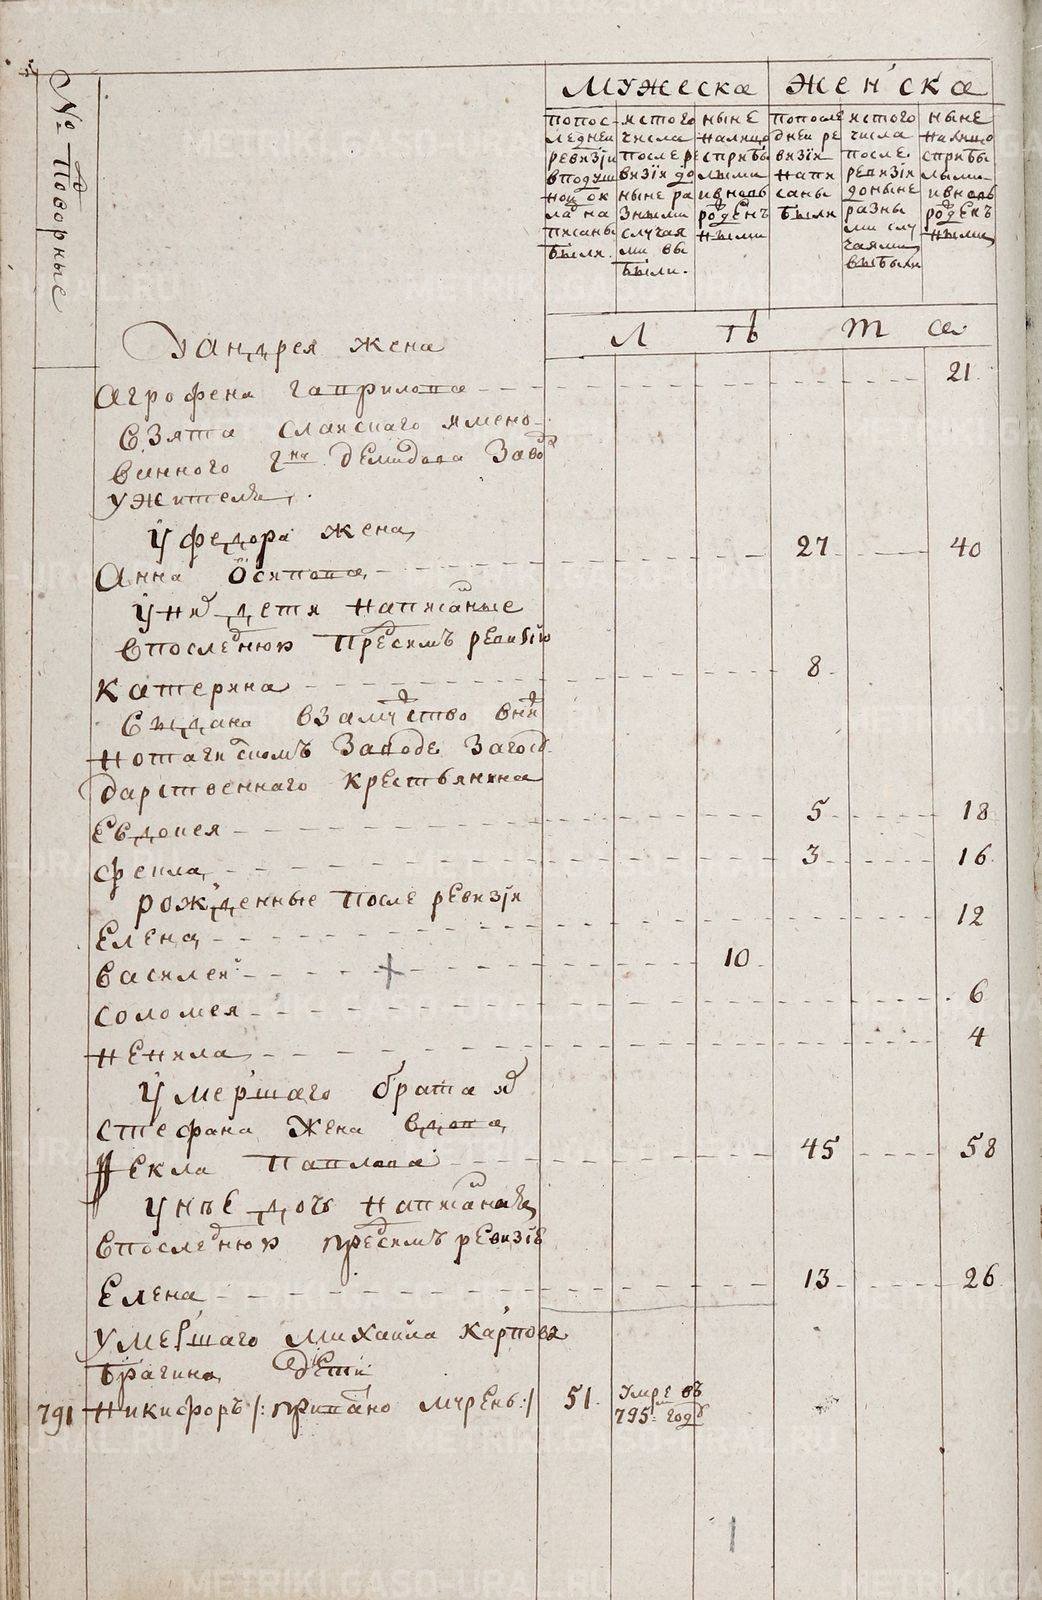 № Подворные
МУЖЕСКА
ЖЕНСКА
попос-
леднеи
ревизiи
вподуш
нои ок
лад на
писаны
были.
истого
числа
после ре
визiи до
ныне ра
зными
случая
ми вы
были.
ныне
налицо
сприбы
лыми
ивновь
рожденъ
ными
попосле
днеи ре
визiи
напи
саны
были
истого
числа
после
ревизiи
доныне
разны
ми слу
чаями
выбыли
ныне
налицо
сприбы
лыми
ивновь
рожденъ
ными
Л ѣ т а
У андрея жена
Агрофена гаврилова 21
взята
ванного гна демидова завод
ужителя
у федора жена
Анна осипова 27 40
у них дети написанные
впоследнюю пред симъ ревизiю
катерина 8
выдана взамужство вниж
нотагилскомъ заводе загосу
дарственнаго крестьянина
Евдокея 5 18
фекла 3 16
рожденные после ревизiи
Елена 12
василеи 10
соломея 6
ненила 4
умершаго брата их
стефана жена вдова
Фекла павлова 45 58
у нее дочь написанная
впоследнюю пред симъ ревизiе
Елена 13 26
умершаго михаила карпова
брагина дети
791 никифоръ /: приписано мчрень :/ 51. умре въ
795: году